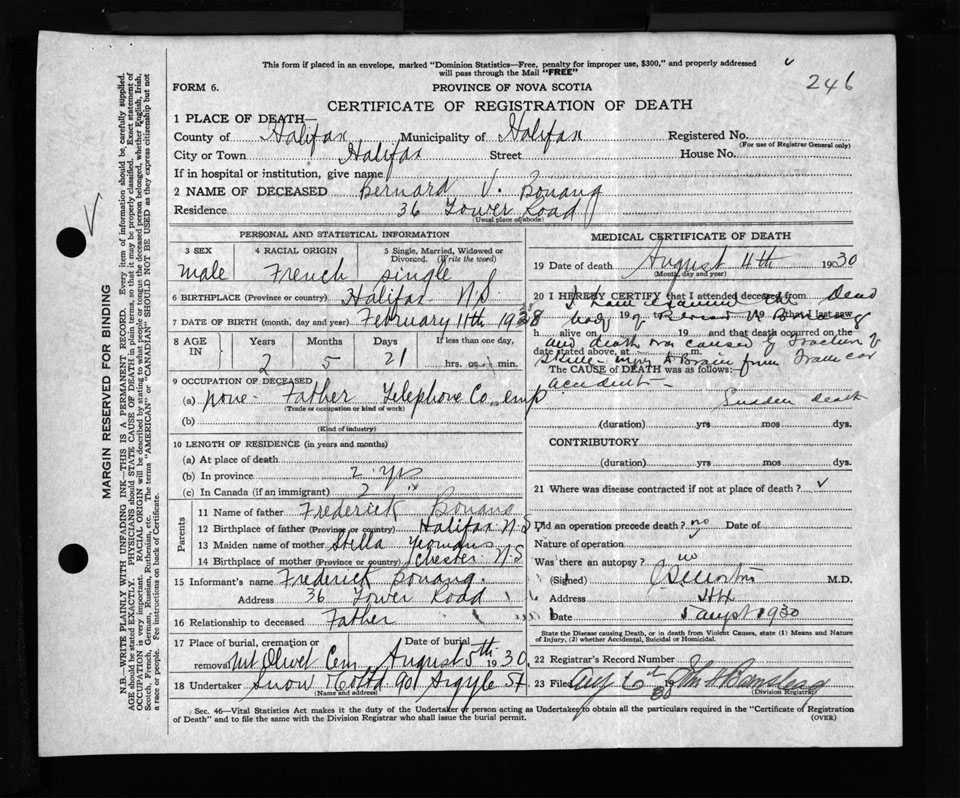 This form if placed in an envelope, marked "Dominion Statistics—Free, penalty for improper use, $300," and properly addressed
will pass through the Mail "FREE"
246
FORM 6.
PROVINCE OF NOVA SCOTIA
CERTIFICATE OF REGISTRATION OF DEATH
1 PLACE OF DEATH—
County of Halifax Municipality of Halifax Registered No.
(For use of Registrar General only)
City or Town Halifax Street House No.
If in hospital or institution, give name
2 NAME OF DECEASED Bernard V. Bonang
Residence 36 Tower Road
(Usual place of abode)
PERSONAL AND STATISTICAL INFORMATION
3 SEX 4 RACIAL ORIGIN 5 Single, Married, Widowed or Divorced. (Write the word)
male French single
6 BIRTHPLACE (Province or country) Halifax N.S
7 DATE OF BIRTH (month, day and year) February 11th 1928
8 AGE IN Years Months Days If less than one day,
2 5 21 hrs. or min.
9 OCCUPATION OF DECEASED
(a) none - Father Telephone Co. emp
(Trade or occupation or kind of work)
(b)
(Kind of industry)
10 LENGTH OF RESIDENCE (in years and months)
(a) At place of death
(b) In province 2 yrs
(c) In Canada (if an immigrant) 2 "
Parents
11 Name of father Frederick Bonang
12 Birthplace of father (Province or country) Halifax N.S
13 Maiden name of mother Stella Yeomans
14 Birthplace of mother (Province or country) Chester N.S
15 Informant's name Frederick Bonang.
Address 36 Tower Road
16 Relationship to deceased Father
17 Place of burial, cremation or removal Mt Olivet Cem Date of burial August 5th 1930.
18 Undertaker Snow & Co Ltd 90 Argyle St
(Name and address)
MEDICAL CERTIFICATE OF DEATH
19 Date of death August 4th 1930
(Month, day and year)
20 I HEREBY CERTIFY that I attended deceased from
I have examined the Dead
19 to 19 that I last saw
body of Bernard V Bonang
h alive on 19 and that death occurred on the
and death was caused by Fracture of
date stated above, at m.
Skull - injury to Brain from Tram car
The CAUSE of DEATH was as follows:
accident -
Sudden death
(duration) yrs mos dys.
CONTRIBUTORY
(duration) yrs. mos. dys.
21 Where was disease contracted if not at place of death?
Did an operation precede death? no Date of
Nature of operation
Was there an autopsy? no
(Signed) M.D.
Address Hfx
Date 5 augt 1930
State the Disease causing Death, or in death from Violent Causes, state (1) Means and Nature
of Injury, (2) whether Accidental, Suicidal or Homicidal.
22 Registrar's Record Number
23 Filed Aug 30
(Division Registrar)
Sec. 46—Vital Statistics Act makes it the duty of the Undertaker or person acting as Undertaker to obtain all the particulars required in the "Certificate of Registration
of Death" and to file the same with the Division Registrar who shall issue the burial permit.
(OVER)
MARGIN RESERVED FOR BINDING
N.B.—WRITE PLAINLY WITH UNFADING INK—THIS IS A PERMANENT RECORD. Every item of information should be carefully supplied.
AGE should be stated EXACTLY. PHYSICIANS should STATE CAUSE OF DEATH in plain terms, so that it may be properly classified. Exact statement of
OCCUPATION is very important. RACIAL ORIGIN will be described by stating to what people or tongue the deceased person belonged, whether English, Irish,
Scotch, French, German, Russian, Ruthenian, etc. The terms "AMERICAN" or "CANADIAN" SHOULD NOT BE USED as they express citizenship but not
a race or people. See instructions on back of Certificate.